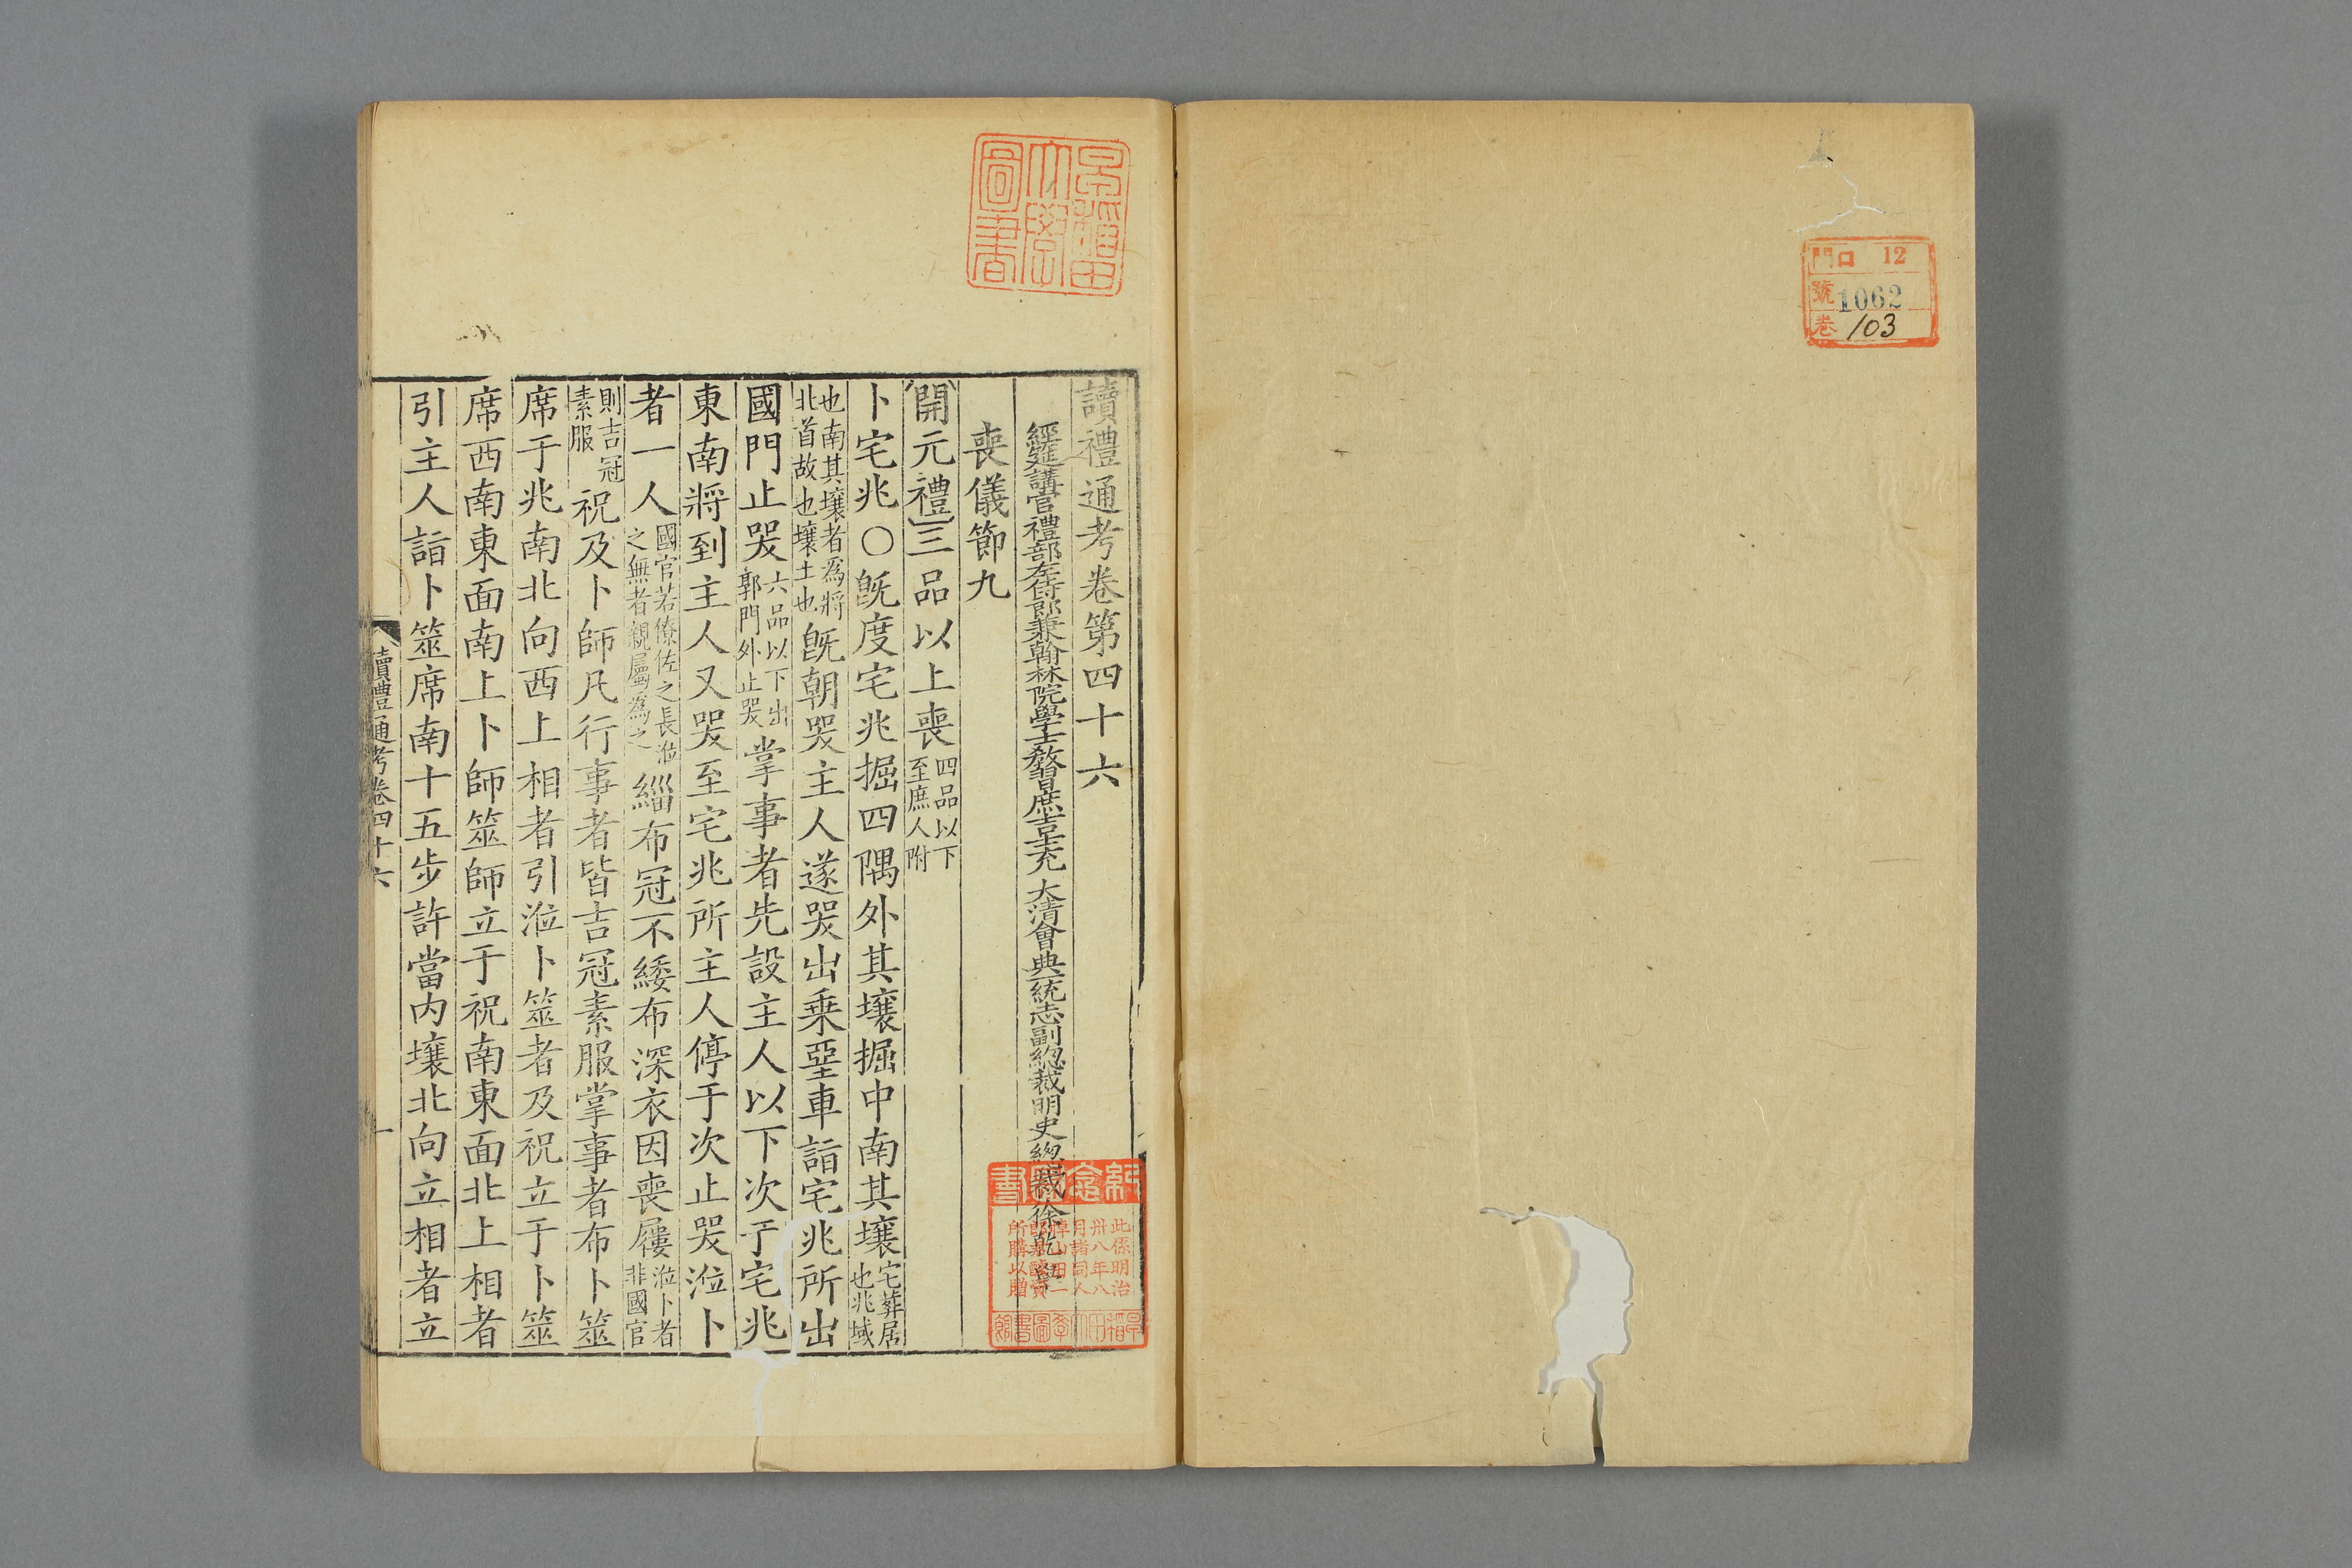 門 口 12
號 1062
卷 103
早稲田
大學
圖書
讀禮通考卷第四十六
經筵講官禮部左侍郎兼翰林院學士教習庶吉士充 大清會典一統志副總裁明史總裁徐乾學
喪儀節九
開元禮三品以上喪四品以下至庶人附
卜宅兆○旣度宅兆掘四隅外其壤掘中南其壤宅葬居也兆域
也南其壤者為將北首故也壤土也旣朝哭主人遂哭出乗堊車詣宅兆所出
國門止哭六品以下出郭門外止哭掌事者先設主人以下次于宅兆
東南將到主人又哭至宅兆所主人停于次止哭涖卜
者一人國官若僚佐之長涖之無者親屬為之緇布冠不緌布深衣因喪屨涖卜者非國官
則吉冠素服祝及卜師凡行事者皆吉冠素服掌事者布卜筮
席于兆南北向西上相者引涖卜筮者及祝立于卜筮
席西南東面南上卜師筮師立于祝南東面北上相者
引主人詣卜筮席南十五步許當内壤北向立相者立
讀禮通考卷四十六 一
紀念圖書
此係明治
卅八年八
月諸同人
所購以贈
早稲田大學圖書館